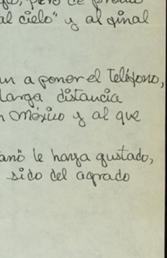 pero de pronto
al cielo" y al final
an a poner el Teléfono,
larga distancia
n México y al que
le haya gustado,
sido del agrado